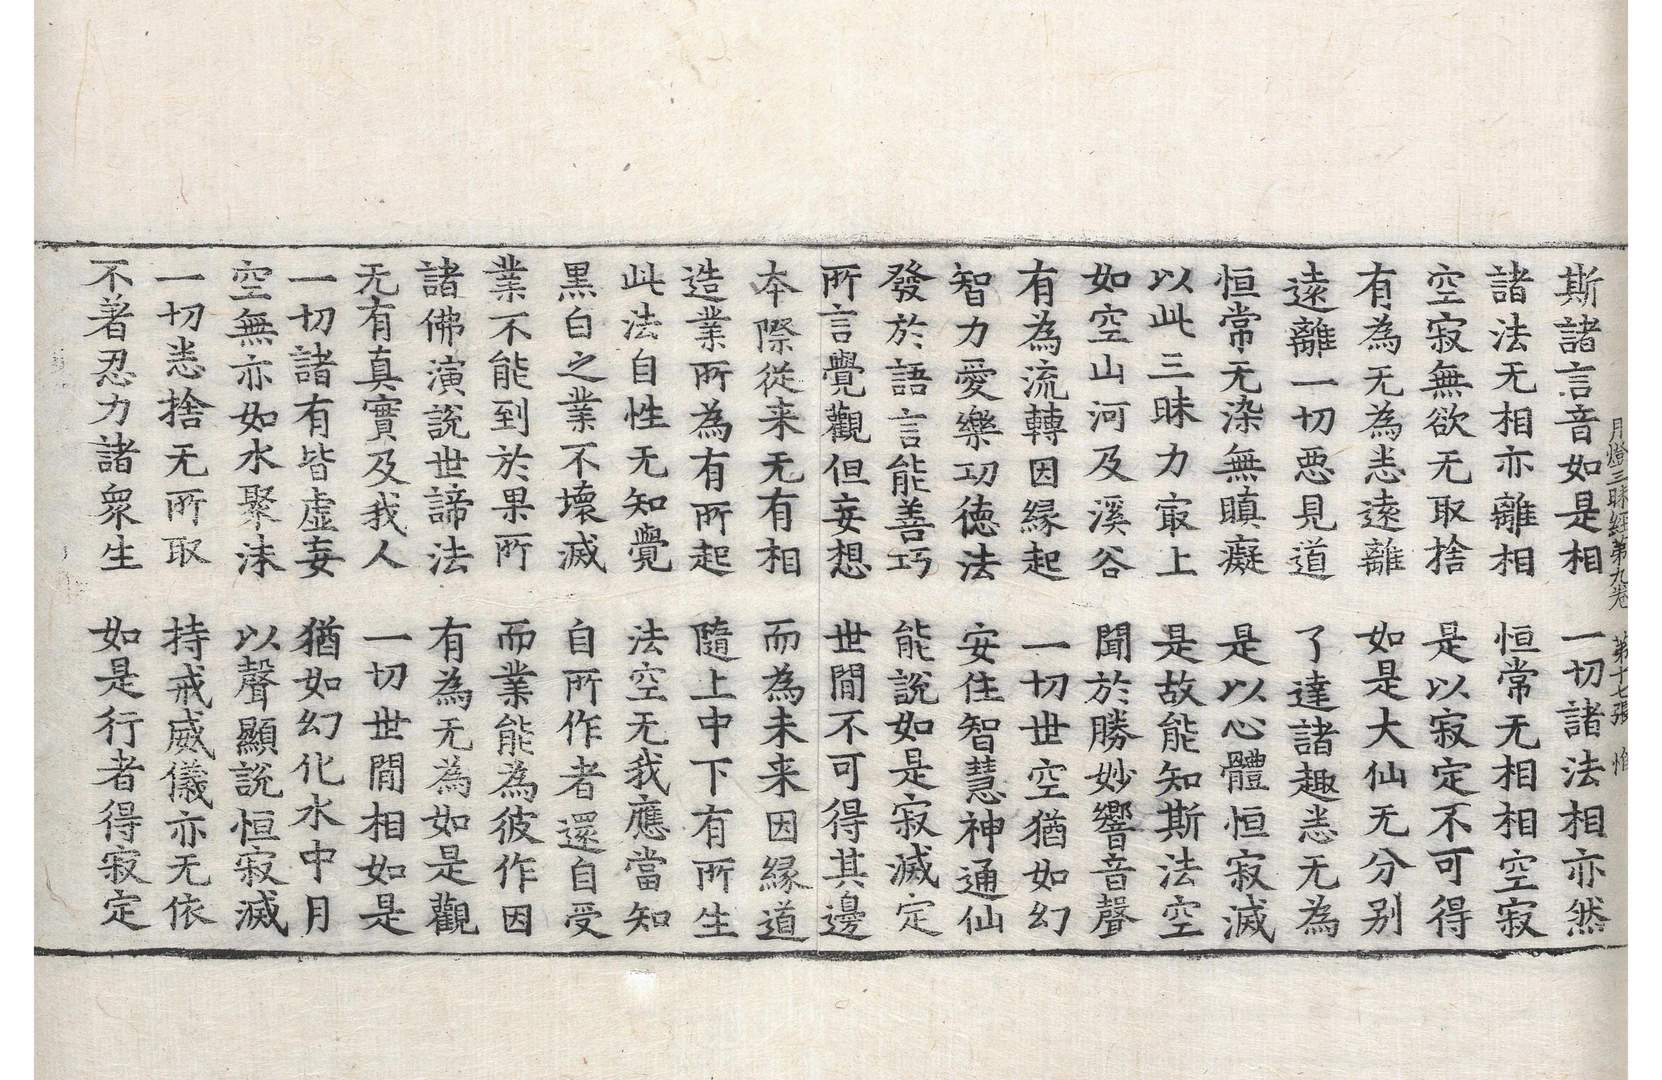 月燈三昧經第九卷　第十七張　惟
斯諸言音如是相　一切諸法相亦然
諸法无相亦離相　恒常无相相空寂
空寂無欲无取捨　是以寂定不可得
有為无為恙遠離　如是大仙无分别
遠離一切惡見道　了達諸趣恙无為
恒常无染無瞋癡　是以心體恒寂滅
以此三昧力㝡上　是故能知斯法空
如空山河及溪谷　聞於勝妙響音聲
有為流轉因緣起　一切世空猶如幻
智力愛樂功徳法　安住智慧神通仙
發於語言能善巧　能說如是寂滅定
所言覺觀但妄想　世間不可得其邊
本際從来无有相　而為未来因緣道
造業所為有所起　隨上中下有所生
此法自性无知覺　法空无我應當知
黒白之業不壞滅　自所作者還自受
業不能到於果所　而業能為彼作因
諸佛演說世諦法　有為无為如是觀
无有真實及我人　一切世間相如是
一切諸有皆虛妄　猶如幻化水中月
空無亦如水聚沫　以聲顯說恒寂滅
一切恙捨无所取　持戒威儀亦无依
不著忍力諸衆生　如是行者得寂定